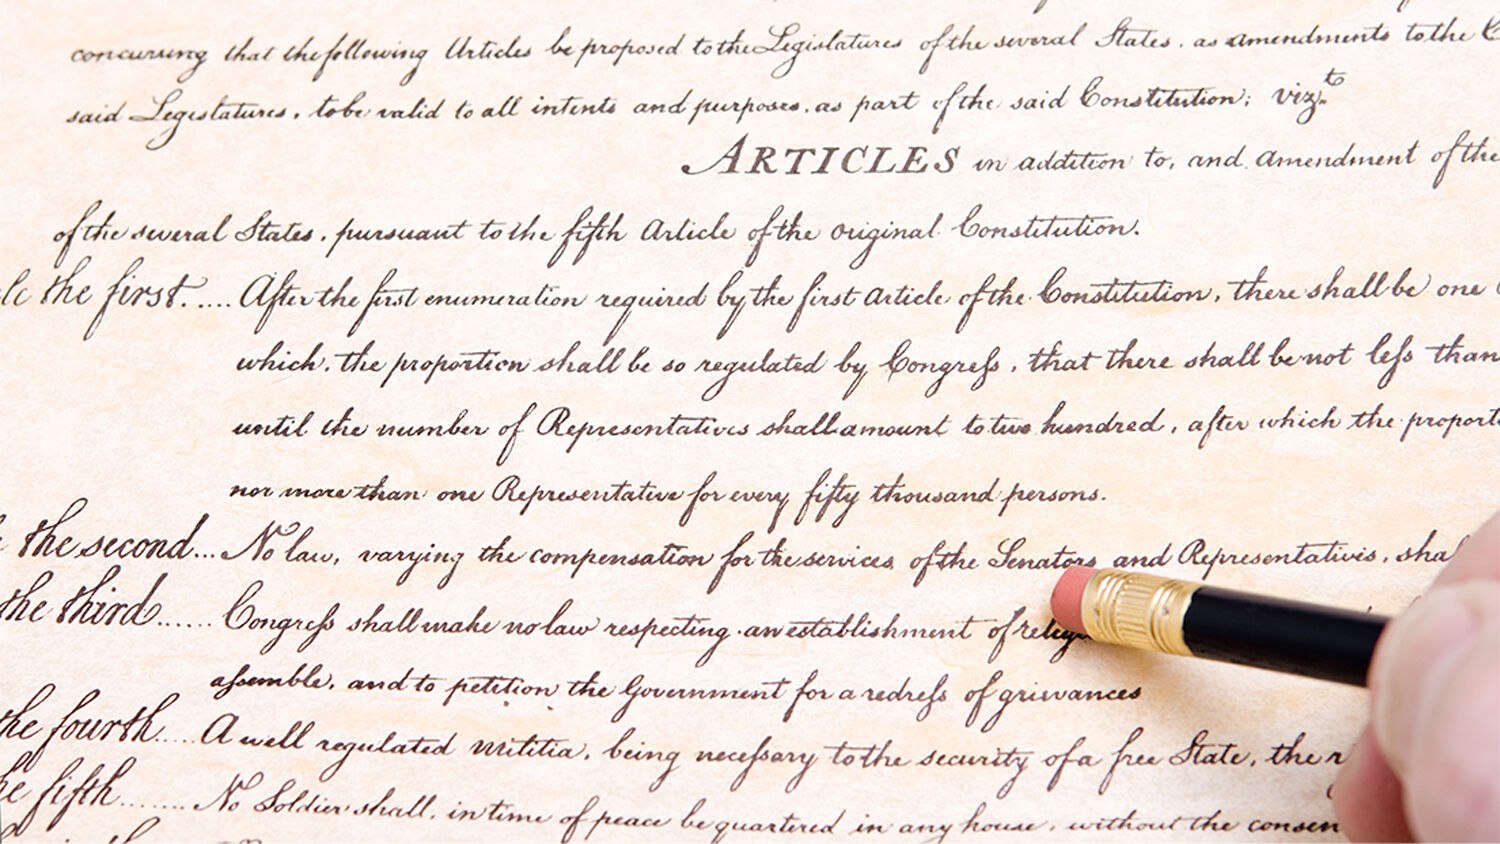 concurring that the following Articles be proposed to the Legislatures of the several States, as amendments to the
said Legislatures, to be valid to all intents and purposes, as part of the said Constitution; vizt.
ARTICLES in addition to, and amendment of the
of the several States, pursuant to the fifth Article of the original Constitution.
the first..... After the first enumeration required by the first Article of the Constitution, there shall be one
which, the proportion shall be so regulated by Congress, that there shall be not less than
until the number of Representatives shall amount to two hundred, after which the
nor more than one Representative for every fifty thousand persons.
the second... No law, varying the compensation for the services of the Senators and Representatives,
the third...... Congress shall make no law respecting an establishment of
assemble, and to petition the Government for a redress of grievances
the fourth.... A well regulated Militia, being necessary to the security of a free State, the
fifth....... No Soldier shall, in time of peace be quartered in any house, without the